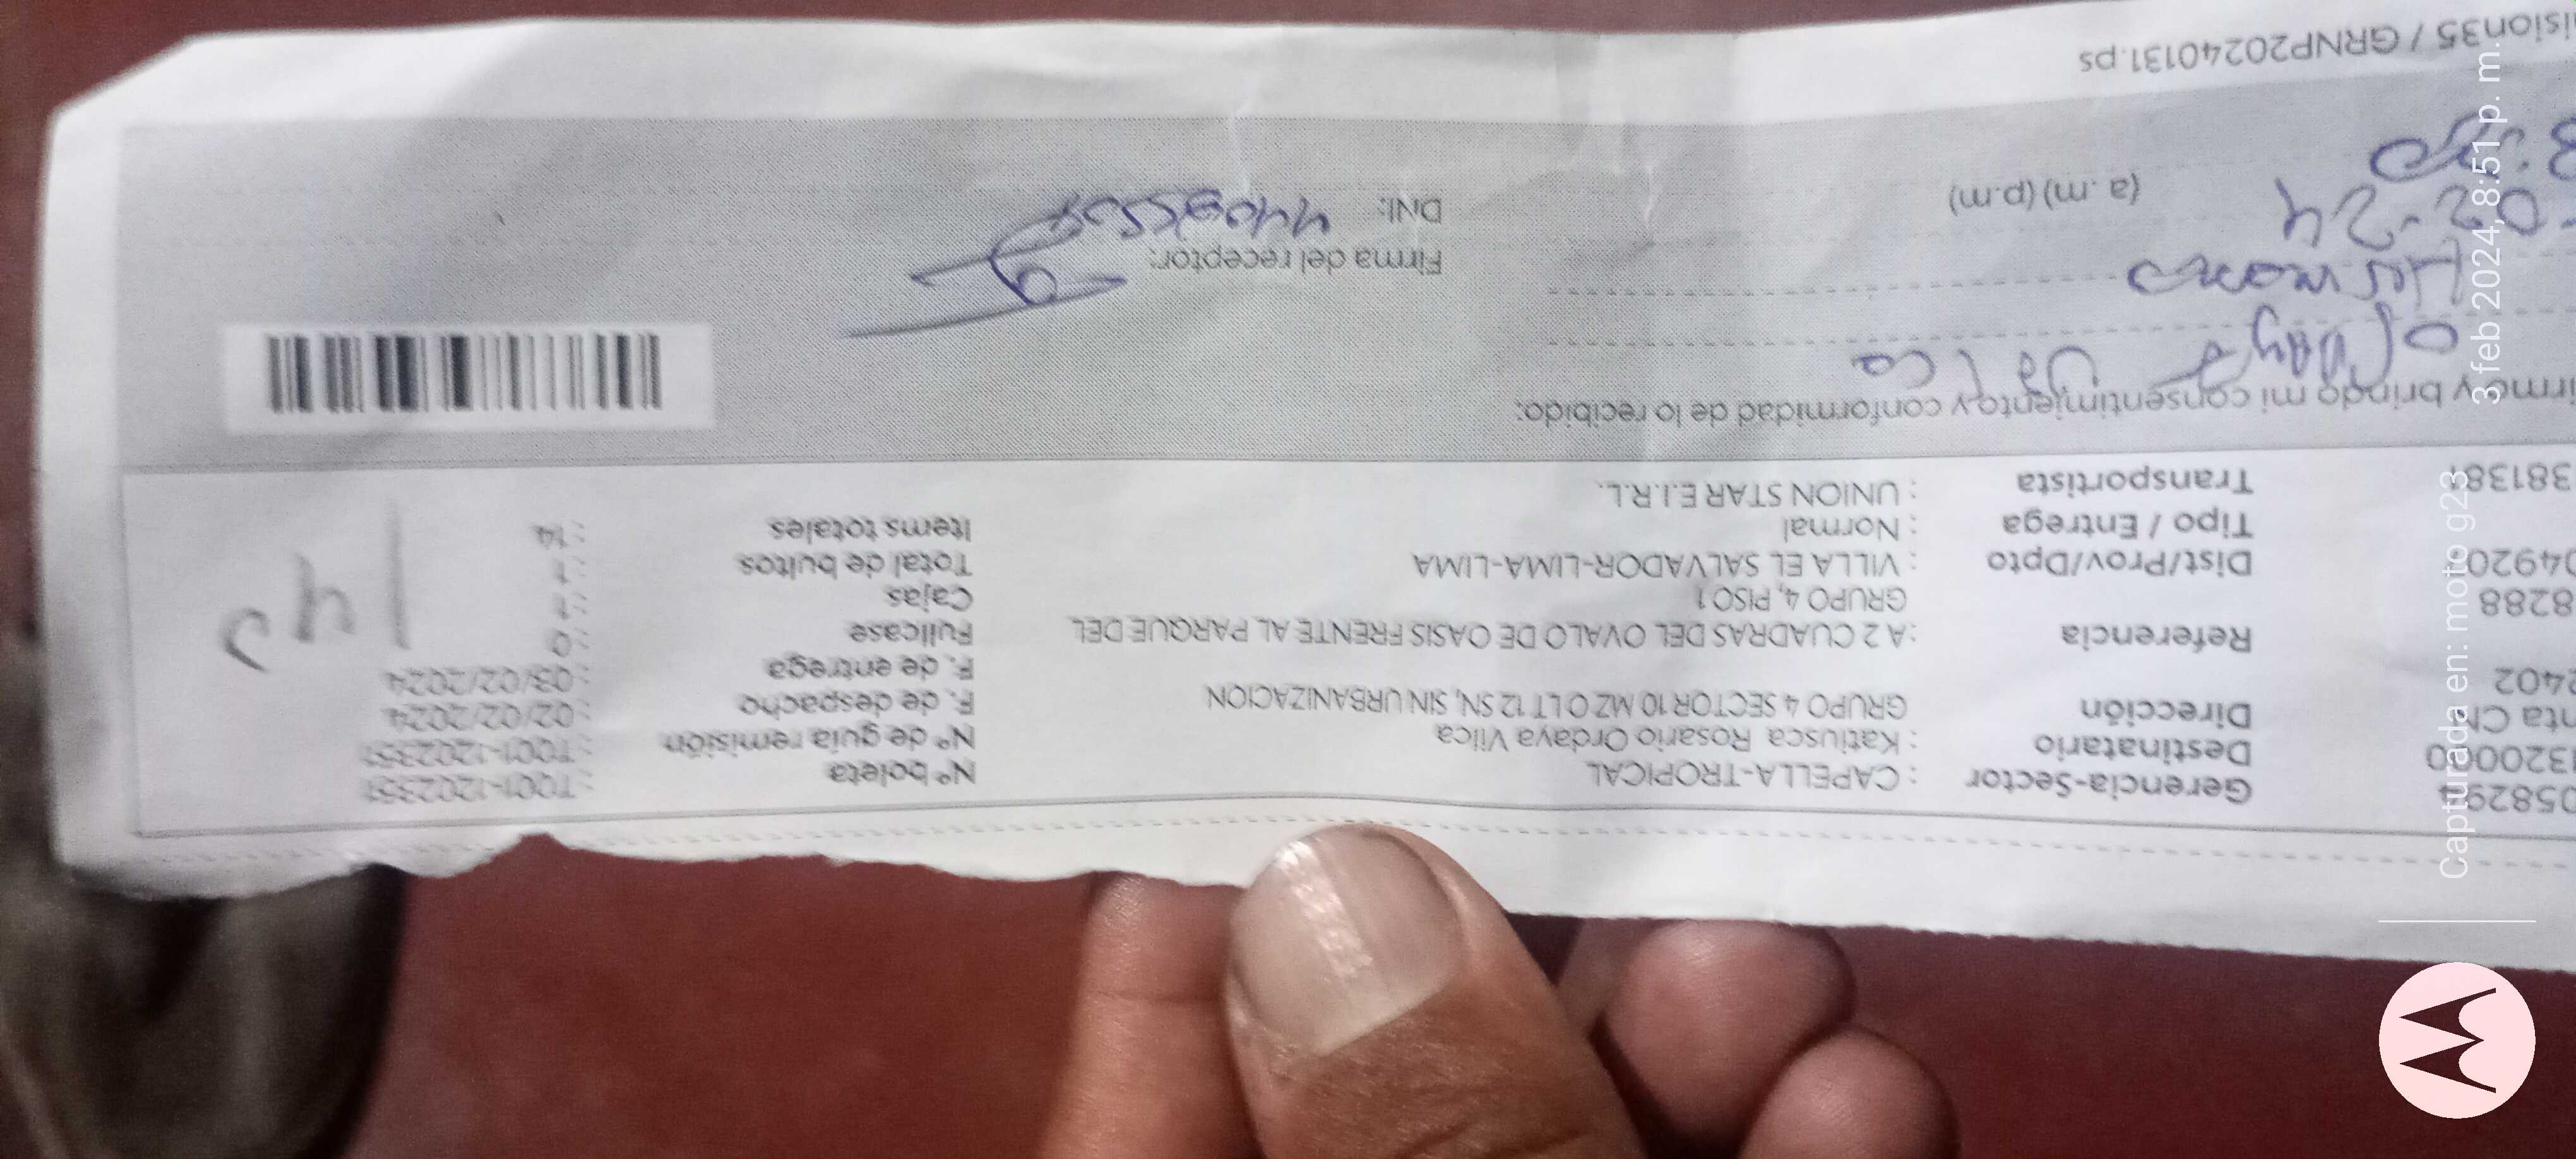 058294
Gerencia-Sector : CAPELLA-TROPICAL
Nº boleta
Destinatario : Katiusca Rosario Ordaya Vilca
Nº de guía remisión
Dirección GRUPO 4 SECTOR 10 MZ O LT 12 SN, SIN URBANIZACION
F. de despacho : 02/02/2024
2402
F. de entrega : 03/02/2024
Referencia : A 2 CUADRAS DEL OVALO DE OASIS FRENTE AL PARQUE DEL
GRUPO 4, PISO 1
Fullcase : 0
8288
Cajas : 1
04920
Dist/Prov/Dpto : VILLA EL SALVADOR-LIMA-LIMA
Total de bultos : 1
Tipo / Entrega : Normal
Items totales : 14
Transportista : UNION STAR E.I.R.L.
irmo y brindo mi consentimiento y conformidad de lo recibido:
Vilca
Hermano
Firma del receptor:
02-24
(a.m) (p.m)
DNI:
ision35 / GRNP20240131.ps
Capturada en: moto g23
3 feb 2024, 8:51 p. m.